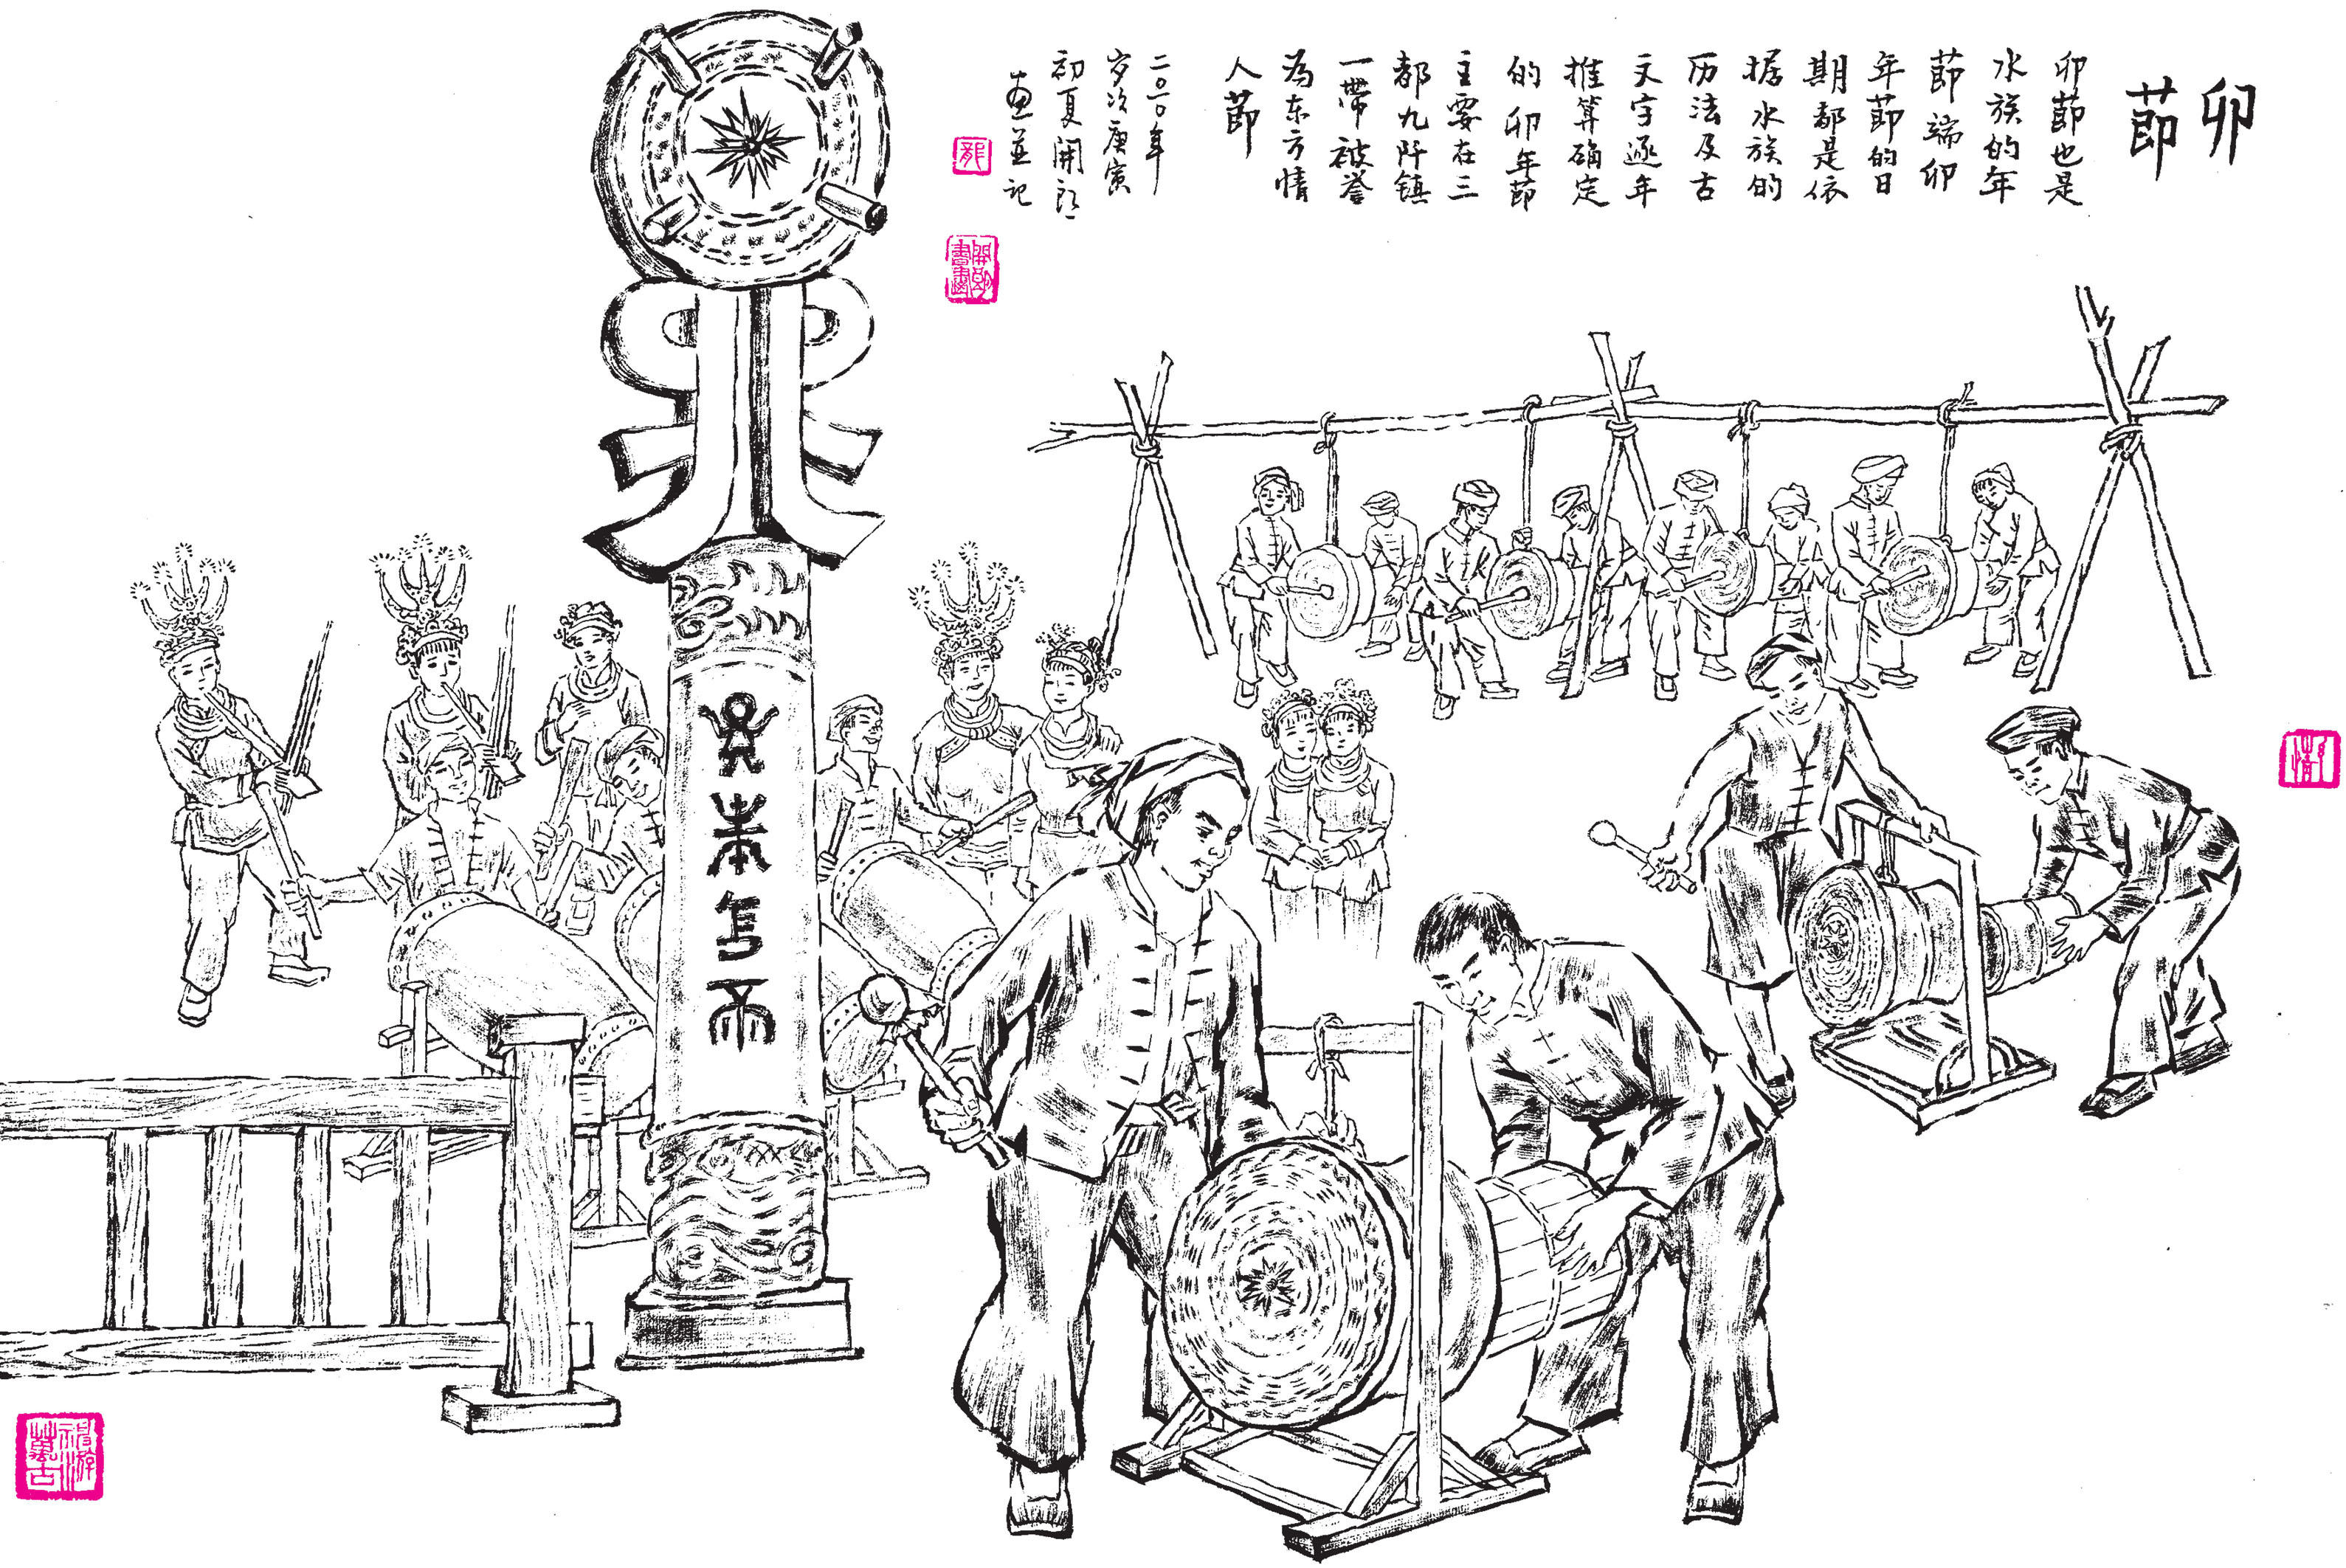 卯節
卯節也是
水族的年
節端卯
年節的日
期都是依
据水族的
历法及古
文字逐年
推算确定
的卯年節
主要在三
都九阡镇
一带被誉
为东方情
人節
二〇一〇年
岁次庚寅
初夏開郎
画並记